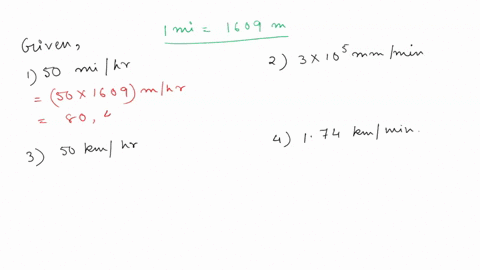 1 mi = 1609 m
Given,
1) 50 mi/hr
= (50 × 1609) m/hr
= 80, 4
2) 3 × 10⁵ mm/min
3) 50 km/hr
4) 1.74 km/min.